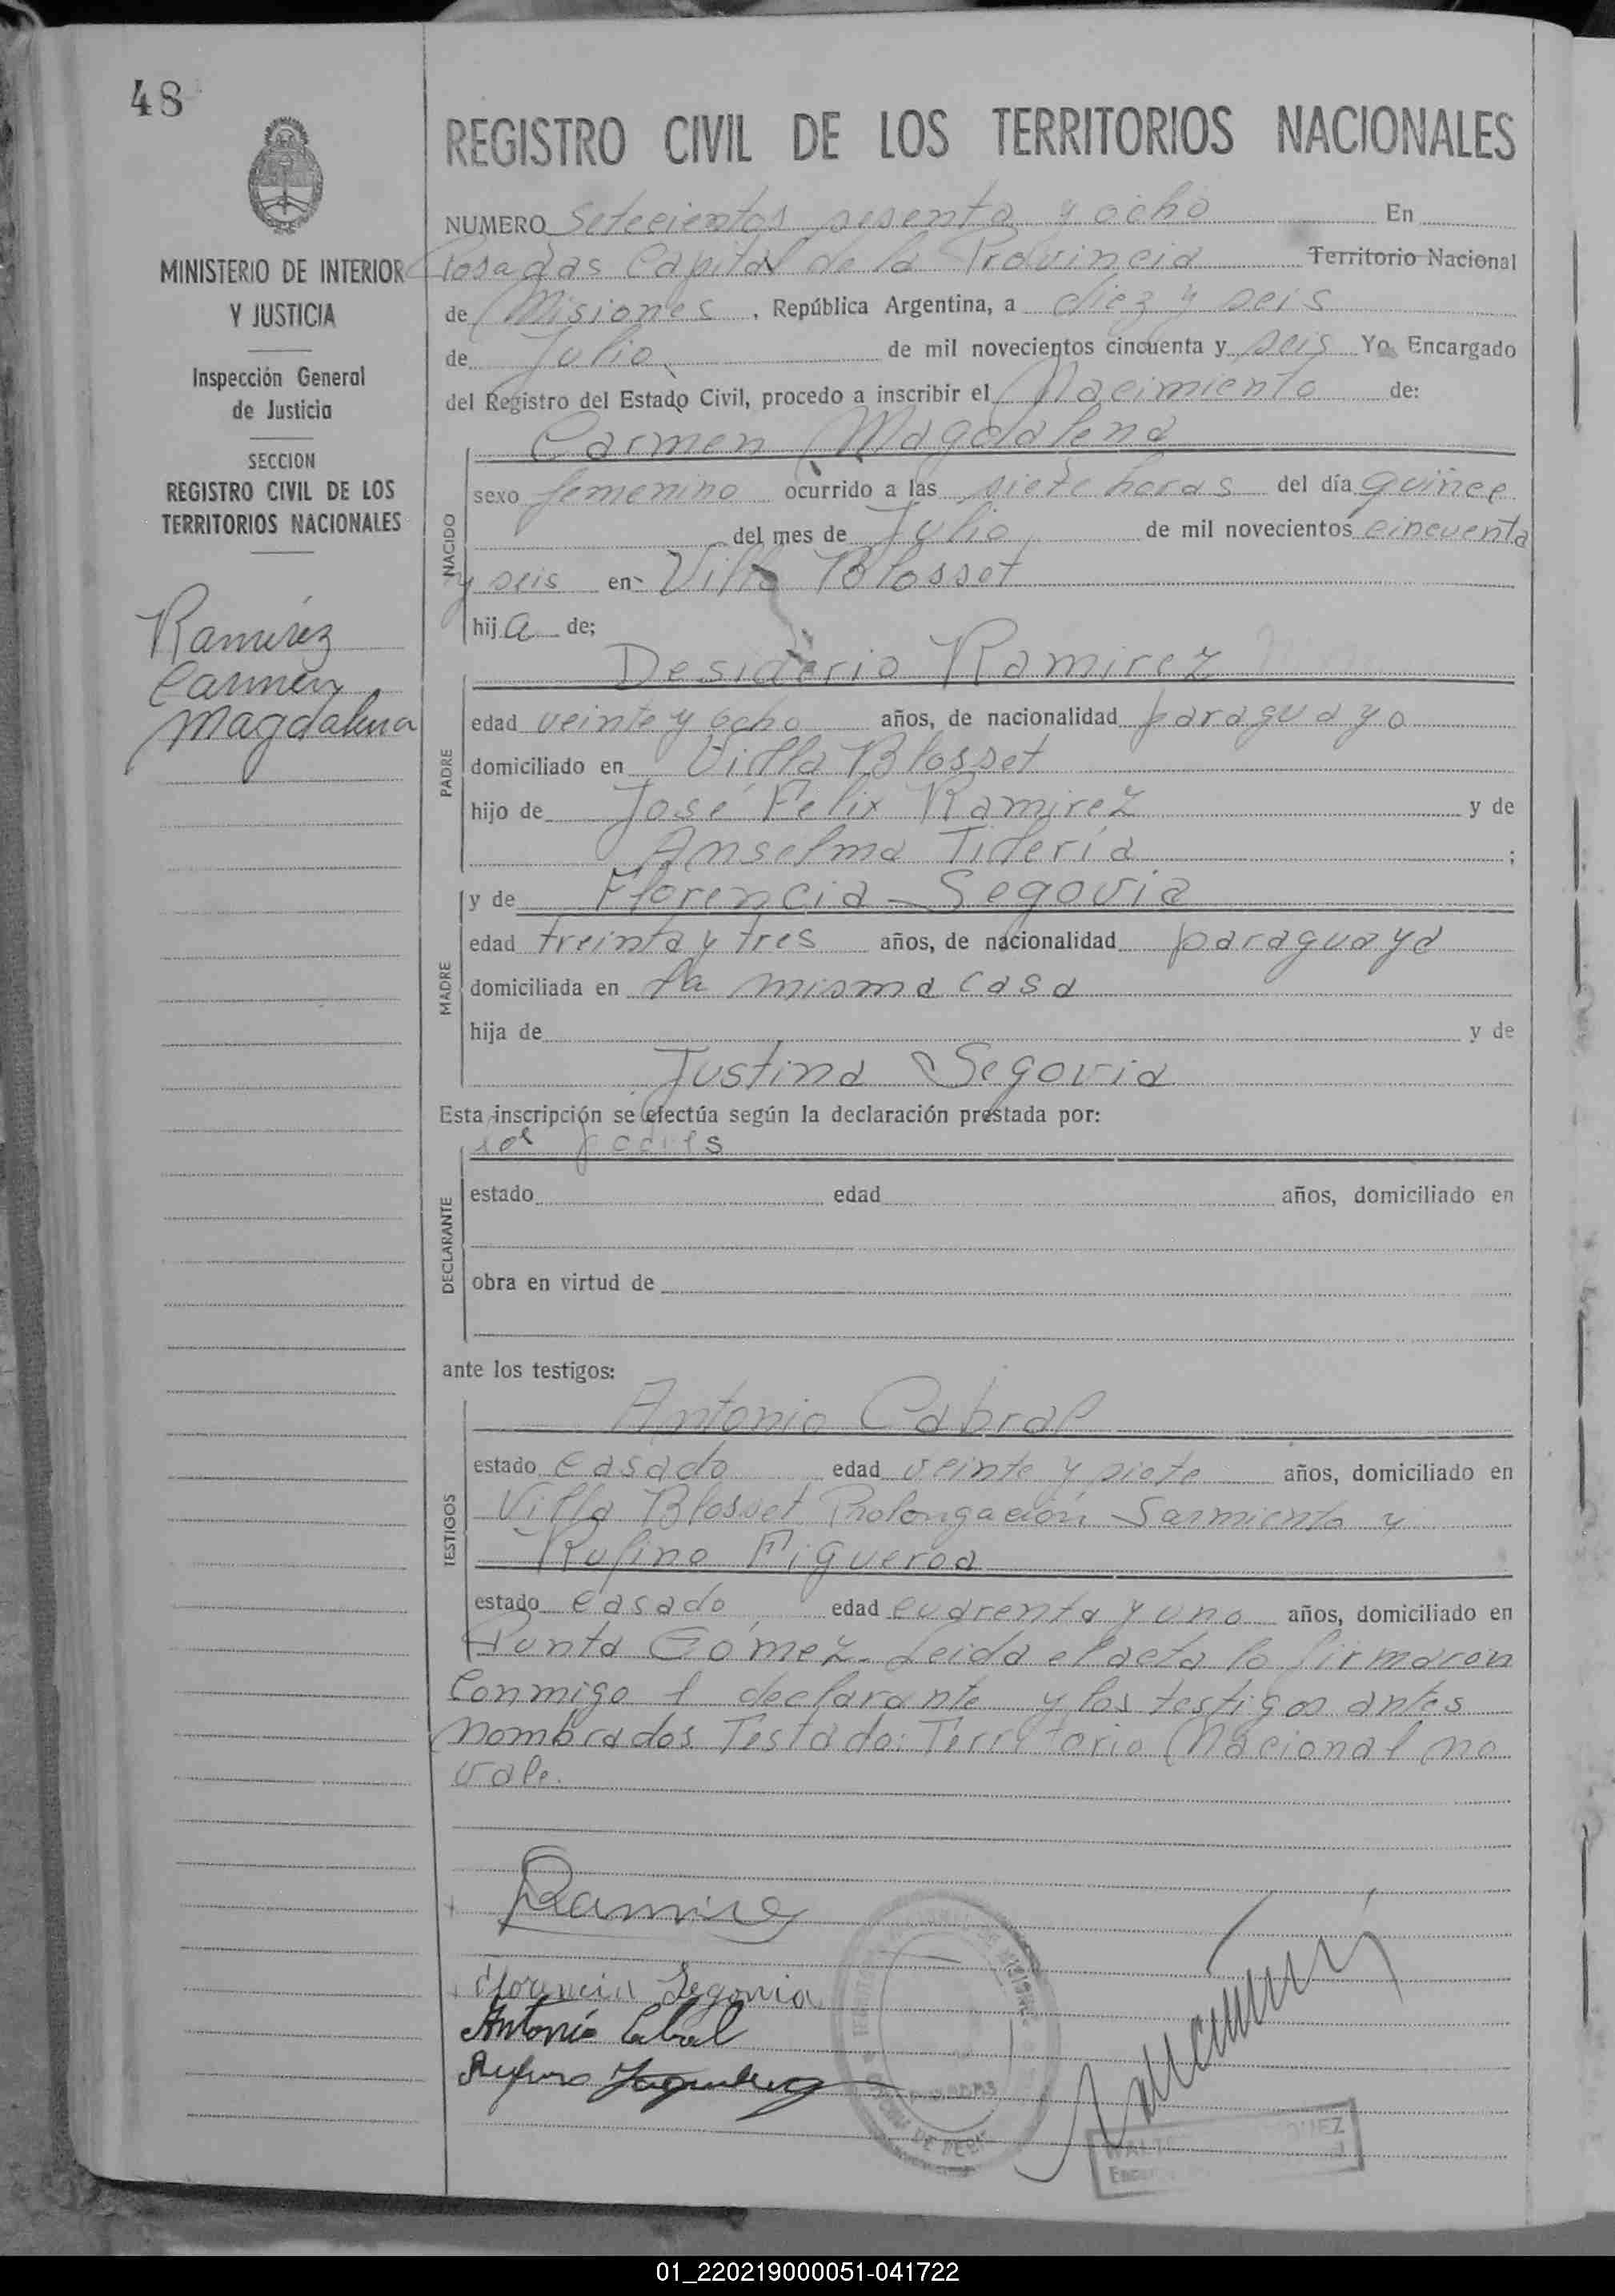 48
REGISTRO CIVIL DE LOS TERRITORIOS NACIONALES
MINISTERIO DE INTERIOR
Y JUSTICIA
Inspección General
de Justicia
SECCION
REGISTRO CIVIL DE LOS
TERRITORIOS NACIONALES
Ramirez
Carmen
Magdalena
NUMERO Setecientos sesenta y ocho En
Posadas Capital de la Provincia Territorio Nacional
de Misiones, República Argentina, a diez y seis
de Julio de mil novecientos cincuenta y seis Yo Encargado
del Registro del Estado Civil, procedo a inscribir el Nacimiento de:
Carmen Magdalena
NACIDO
sexo femenino ocurrido a las siete horas del día quince
del mes de Julio de mil novecientos cincuenta
y seis en Villa Blosset
hija de;
Desiderio Ramirez
PADRE
edad veinte y ocho años, de nacionalidad paraguayo
domiciliado en Villa Blosset
hijo de José Felix Ramirez y de
Anselma Tilería ;
MADRE
y de Florencia Segovia
edad treinta y tres años, de nacionalidad paraguaya
domiciliada en la misma casa
hija de y de
Justina Segovia
Esta inscripción se efectúa según la declaración prestada por:
los padres
DECLARANTE
estado edad años, domiciliado en
obra en virtud de
ante los testigos:
TESTIGOS
Antonio Cabral
estado casado edad veinte y siete años, domiciliado en
Villa Blosset Prolongación Sarmiento y
Rufino Figueroa
estado casado edad cuarenta y uno años, domiciliado en
Punta Gómez. Leida el acta la firmaron
conmigo l declarante y los testigos antes
nombrados Testado: Territorio Nacional no
vale.
Ramirez
Florencia Segovia
Antonio Cabral
Rufino
MISIONES
POSADAS
01_220219000051-041722